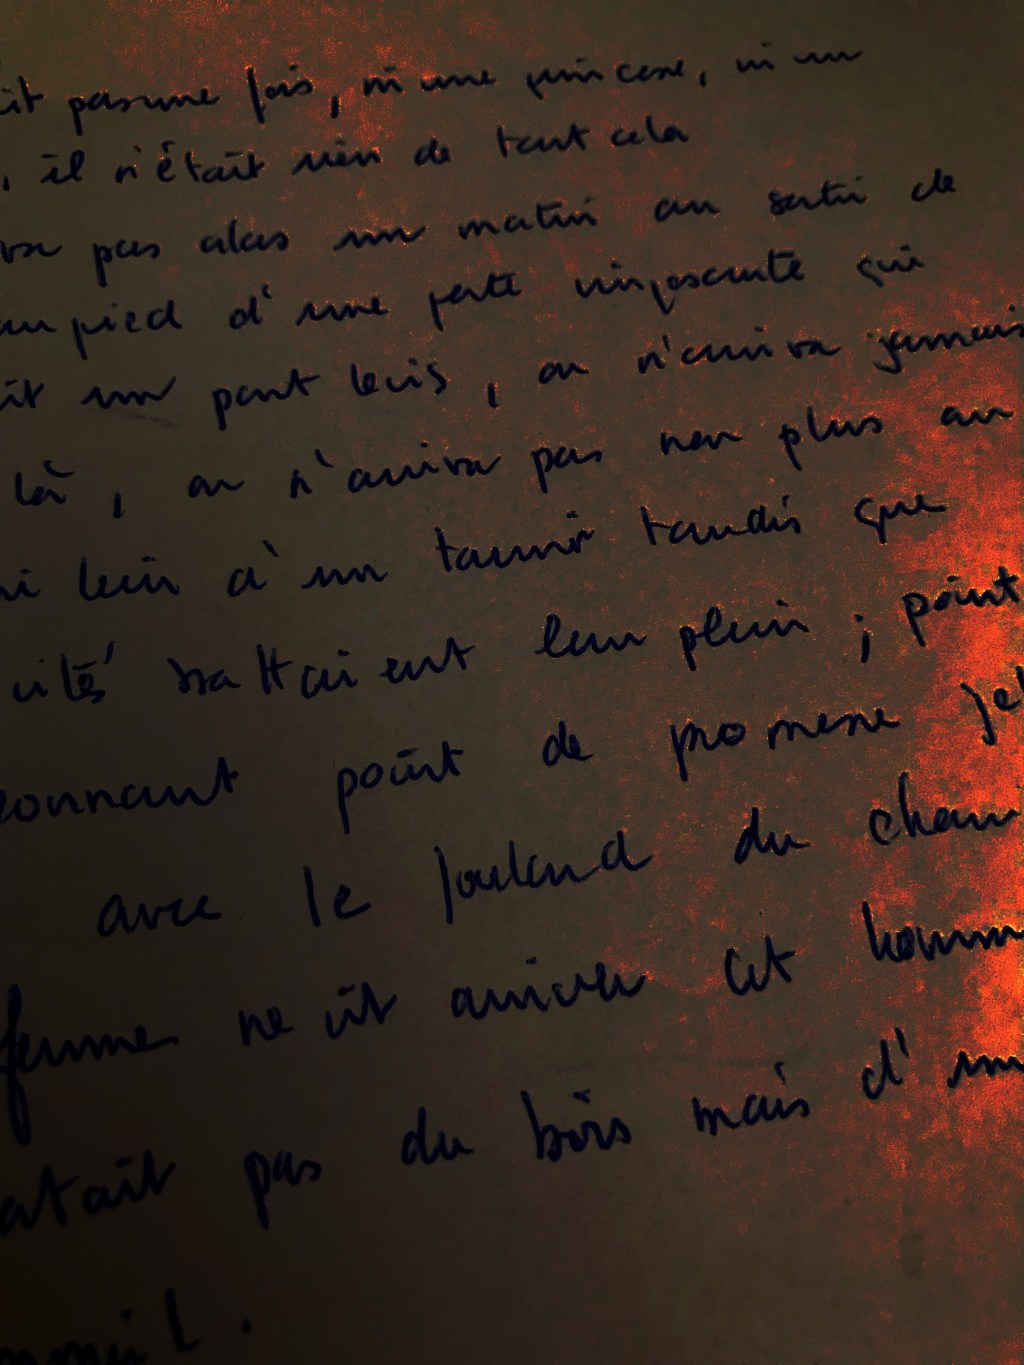 pas une fois, ni une princesse, ni un
, il n'était rien de tout cela
pas alas un matin au sortir de
au pied d'une porte imposante qui
un pont levis, on n'arriva jamais
là, on n'arriva pas non plus au
loin à un tandis que
battaient leur plein ; point
point de promesse
avec le du
femme ne vit arriver cet homm
pas du bois mais d'un